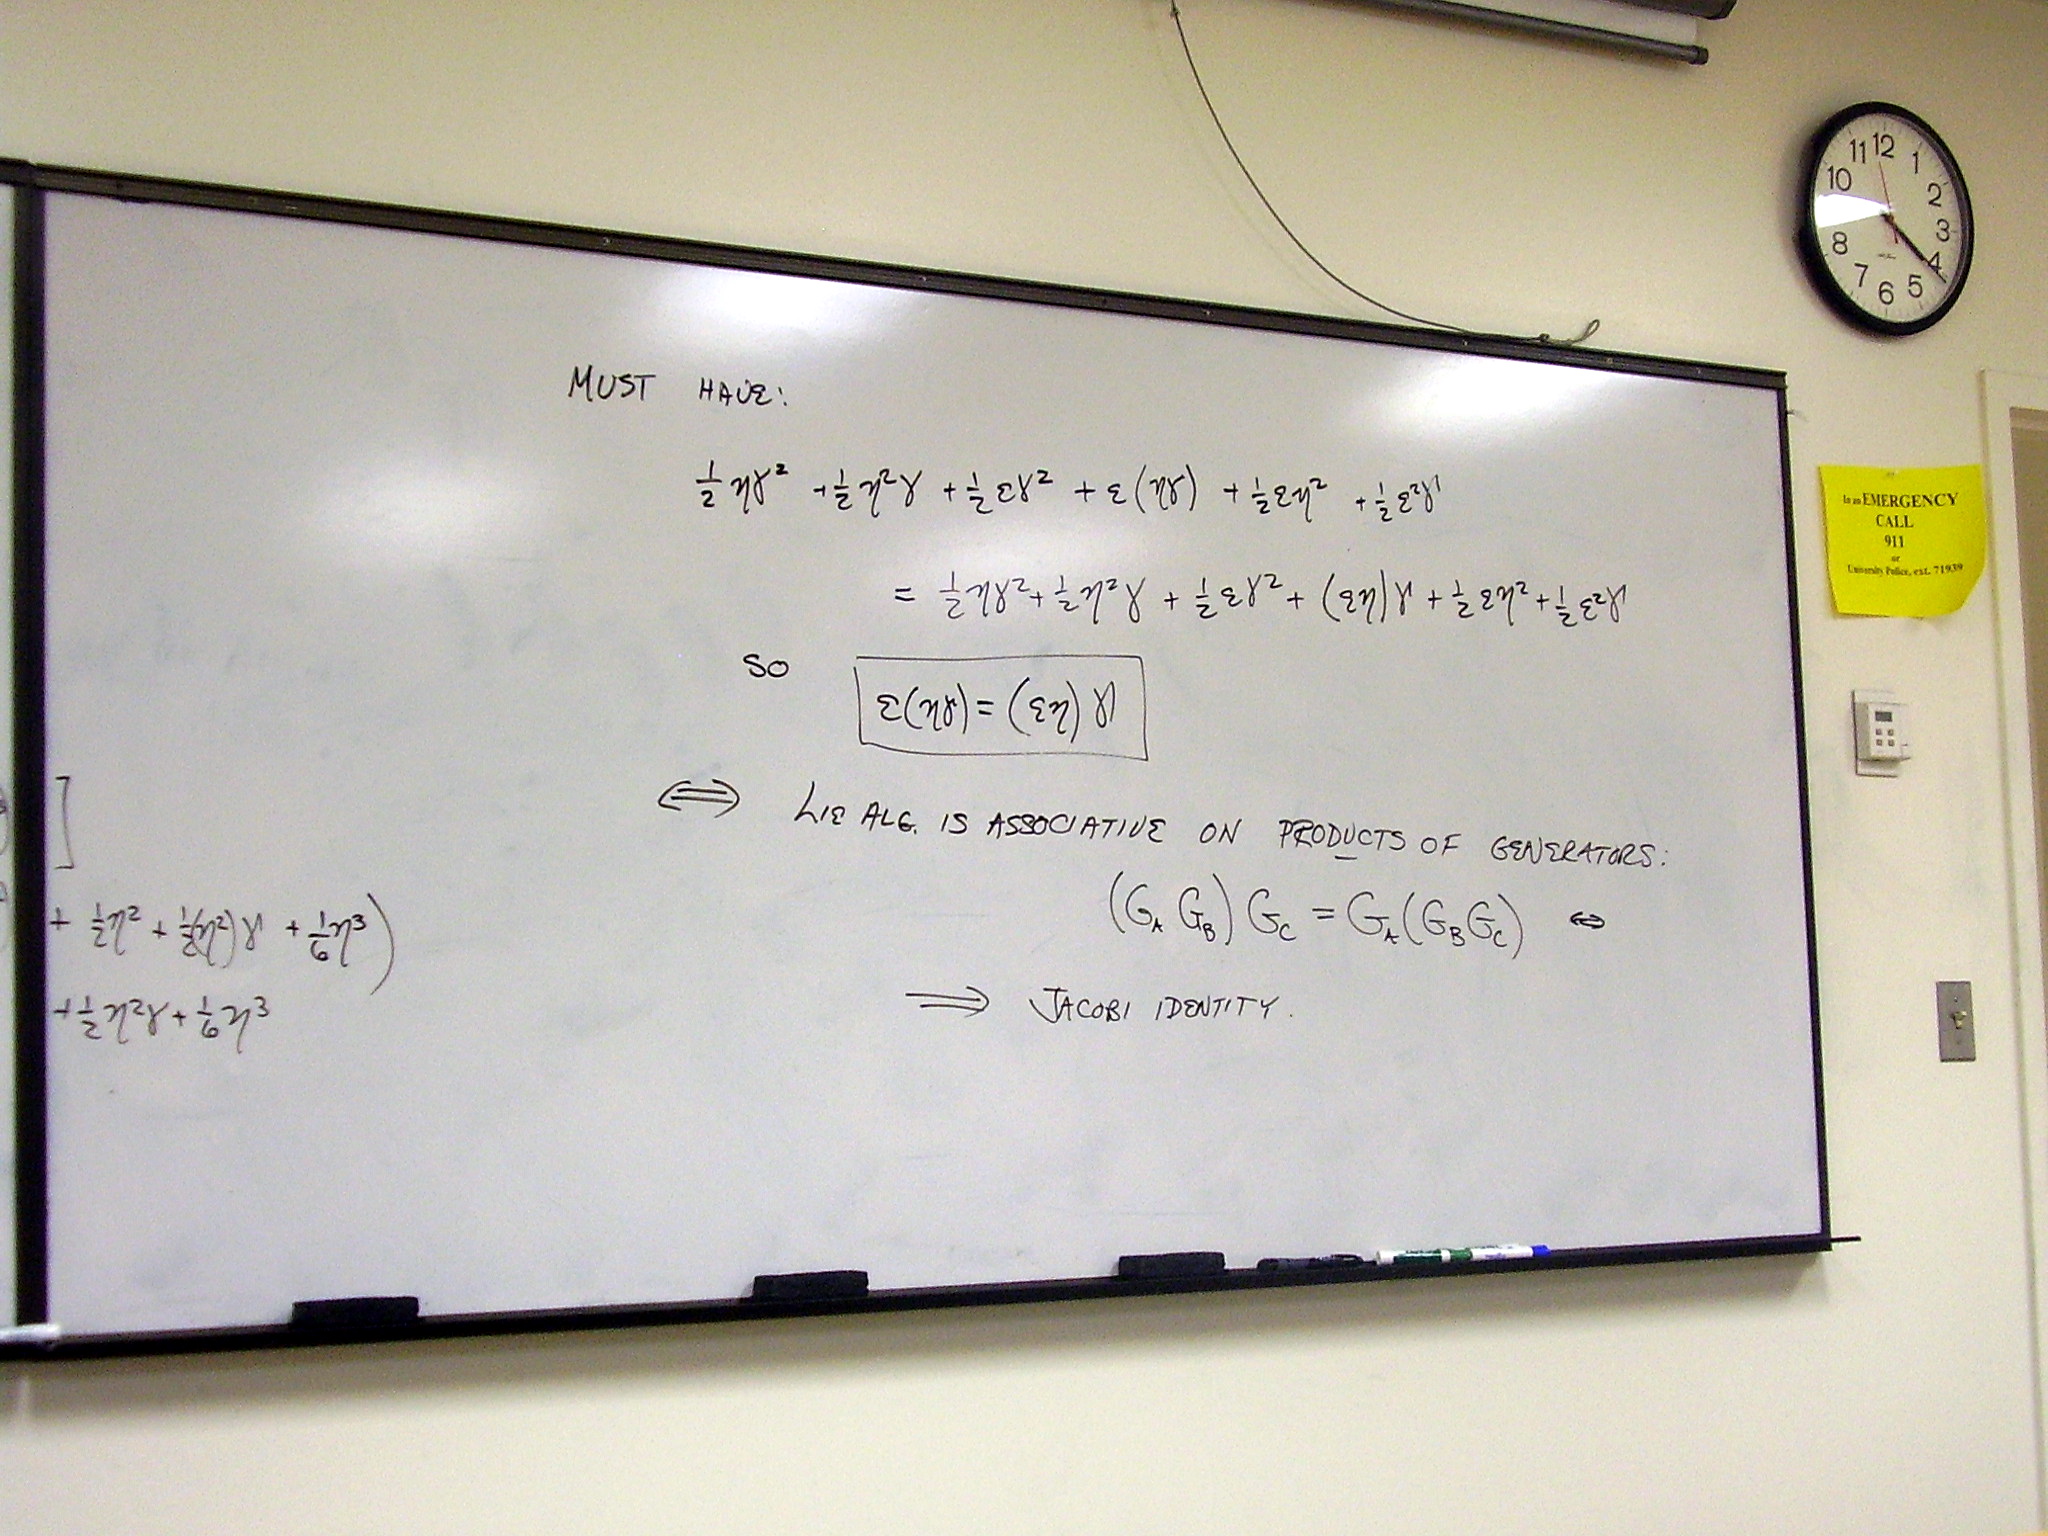 MUST HAVE:
½ηγ² + ½η²γ + ½εγ² + ε(ηγ) + ½εη² + ½ε²γ
= ½ηγ² + ½η²γ + ½εγ² + (εη)γ + ½εη² + ½ε²γ
SO
ε(ηγ) = (εη)γ
⟺ LIE ALG. IS ASSOCIATIVE ON PRODUCTS OF GENERATORS:
(G_A G_B) G_C = G_A (G_B G_C) ⟺
⟹ JACOBI IDENTITY.
]
+ ½η² + ½(η²)γ + ⅙η³)
+ ½η²γ + ⅙η³
12
1
2
3
4
5
6
7
8
10
11
In an EMERGENCY
CALL
911
or
University Police, ext. 71939